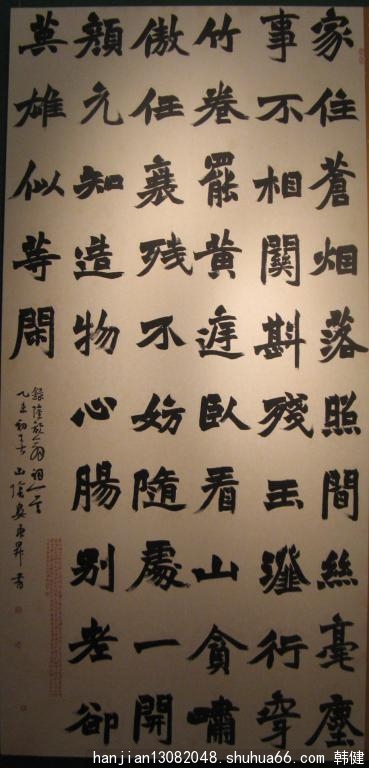 家住蒼烟落照間絲毫塵
事不相關斟殘玉瀣行穿
竹卷罷黄庭臥看山貪嘯
傲任衰残不妨隨處一開
顏元知造物心腸别老卻
英雄似等閑
錄陸放翁詞一首
山陰 書
hanjian13082048.shuhua66.com 韩健